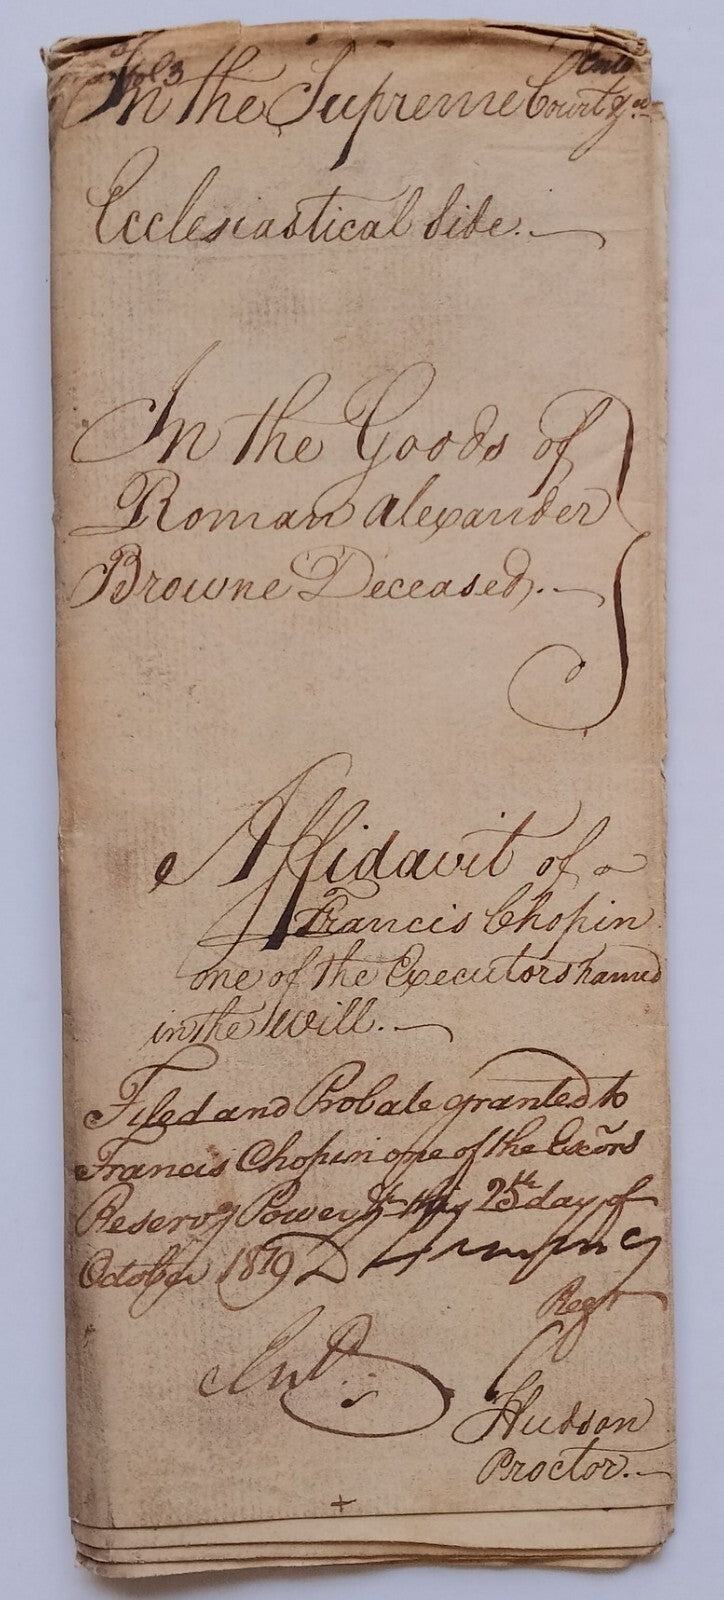 In the Supreme Court &ca
Ecclesiastical Side.
In the Goods of
Roman Alexander
Browne Deceased.
Affidavit of
Francis Chopin
one of the Executors named
in the Will.
Filed and Probate granted to
Francis Chopin one of the Exõrs
Reservg Power &c this 25th day of
October 1819
Regr
Hudson
Proctor.